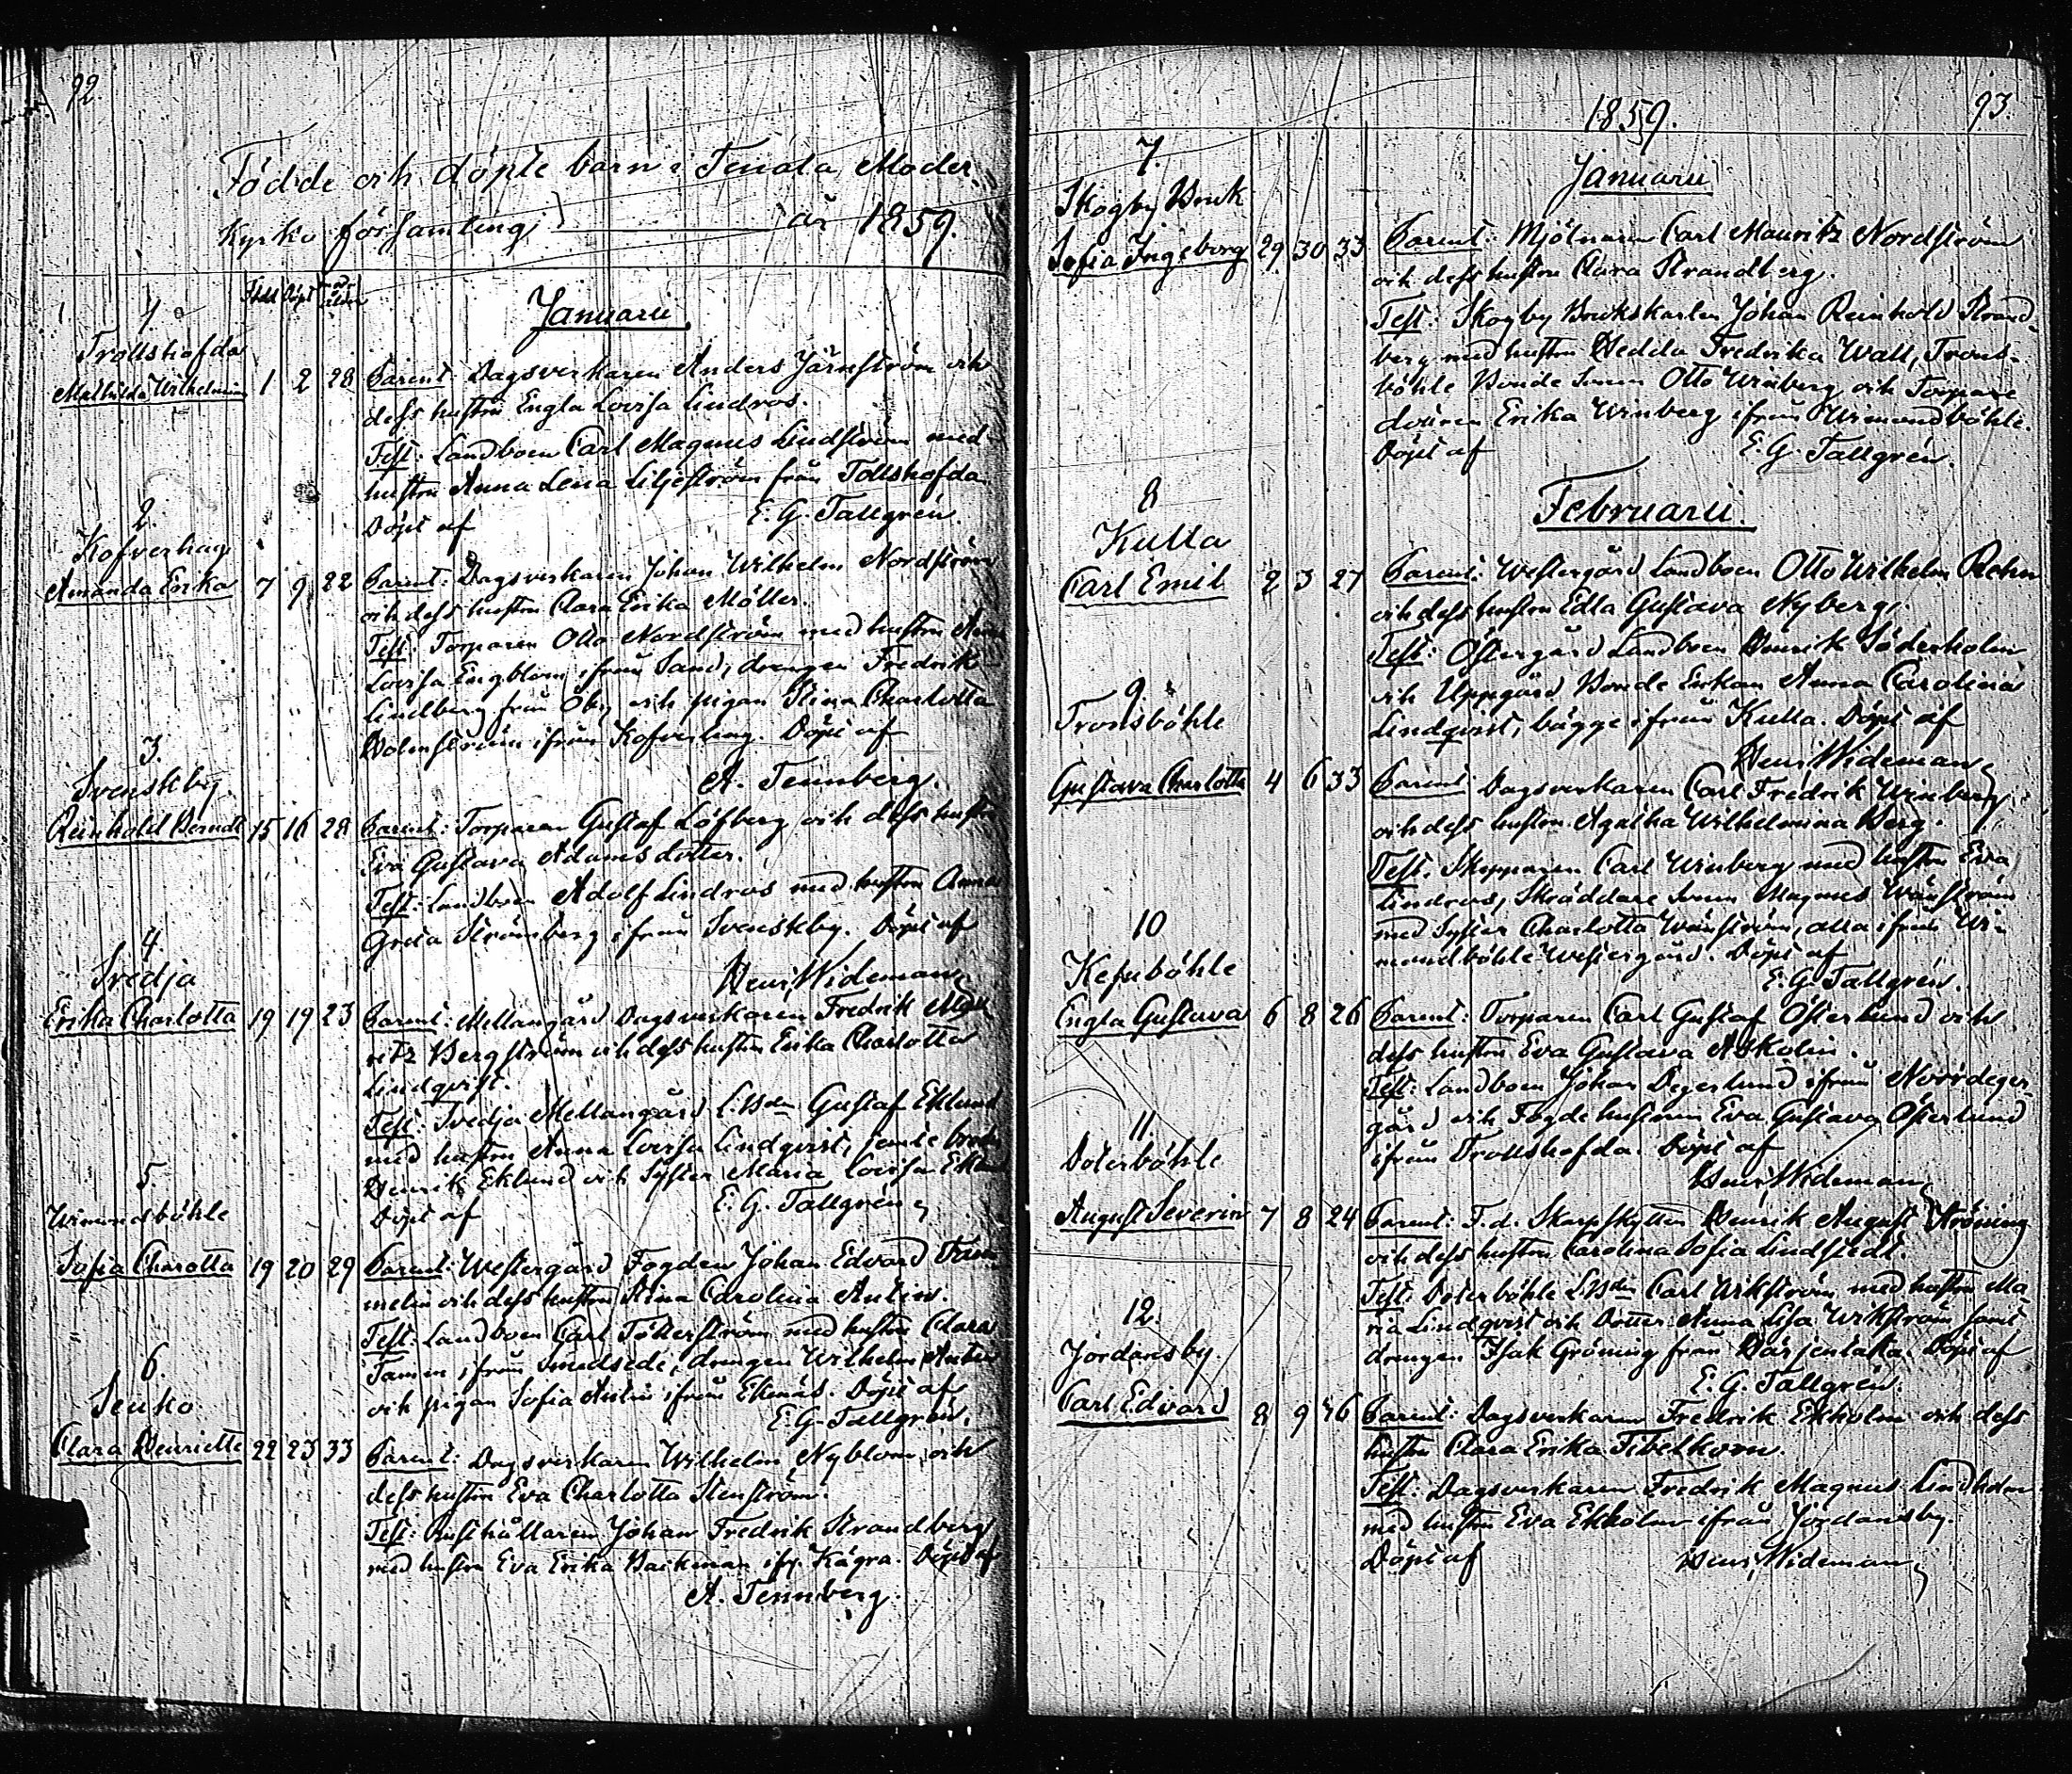 92.
Födde och döpte barn i Tenala Moder
Kyrko församling år 1859.
Född Döpt
Januarii.
1.
Trollshofda
Mathilda Wilhelmina 1 2 28 Parent: Dagsverkaren Anders Järnström och
dess hustru Engla Lovisa Lindros.
Test: Landboen Carl Magnus Lindström med
hustru Anna Lena Liljeström från Tollshofda
Döpt af E. G. Tallgrén.
2.
Kofverhag
Amanda Erika 7 9 22 Parent: Dagsverkaren Johan Wilhelm Nordström
och dess hustru Clara Erika Möller.
Test: Torparen Otto Nordström med hustru Anna
Lovisa Engblom ifrån Sand, drengen Fredrik
Lindberg från Oby och pigan Stina Charlotta
Holmström ifrån Kofverhag. Döpt af
A. Tennberg.
3.
Svenskby
Reinhold Berndt 15 16 28 Parent: Torparen Gustaf Löfberg och dess hustru
Eva Gustava Adamsdotter.
Test: Landboen Adolf Lindros med hustru Anna
Greta Strömberg ifrån Svenskby. Döpt af
Henr. Wideman
4.
Svedja
Erika Charlotta 19 19 23 Parent: Mellangård Dagsverkaren Fredrik Mau
ritz Bergström och dess hustru Erika Charlotta
Lindqvist.
Test: Svedja Mellangård L:Bdn Gustaf Eklund
med hustru Anna Lovisa Lindqvist, jemte brodr
Henrik Eklund och Syster Maria Lovisa Eklu
Döpt af E. G. Tallgrén
5.
Wimondsböhle
Sofia Charotta 19 20 29 Parent: Westergård Fogden Johan Edvard
melin och dess hustru Stina Carolina Antin.
Test: Landboen Carl Tötterström med hustru Clara
Tamm, från Smedsede, drengen Wilhelm Antin
och pigan Sofia Antin ifrån Ekenäs. Döpt af
E. G. Tallgrén.
6.
Senko
Clara Henriette 22 23 33 Parent: Dagsverkaren Wilhelm Nyblom och
dess hustru Eva Charlotta Stenström.
Test: Rusthållaren Johan Fredrik Strandberg
med hustru Eva Erika Backman ifr. Kägra. Döpt af
A. Tennberg.
1859. 93.
Januarii
7.
Skogby Bruk
Sofia Ingeborg 29 30 33 Parent: Mjölnaren Carl Mauritz Nordström
och dess hustru Clara Strandberg.
Test: Skogby Brukskarlen Johan Reinhold Strand
berg med hustru Hedda Fredrika Wall, Trons-
böhle Bonde Sonen Otto Winberg och Torpare
dottren Erika Winberg ifrån Wimondböhle.
Döpt af E. G. Tallgrén.
Februarii.
8
Kulla
Carl Emil 2 3 27 Parent: Westergård Landboen Otto Wilhelm Rehn
och dess hustru Edla Gustava Nyberg.
Test: Östergård Landboen Henrik Söderholm
och Uppgård Bonde Enkan Anna Carolina
Lindqvist, bägge ifrån Kulla. Döpt af
Henr. Wideman
9.
Tronsböhle
Gustava Charlotta 4 6 33 Parent: Dagsverkaren Carl Fredrik Winberg
och dess hustru Agatha Wilhelmina Berg.
Test. Skepparen Carl Winberg med hustru Eva
Lindros, Skräddare Sonen Magnus Wänström
med Syster Charlotta Wänström, alla ifrån Wi-
mondböhle Westergård. Döpt af
E. G. Tallgrén.
10
Kefuböhle
Engla Gustava 6 8 26 Parent: Torparen Carl Gustaf Österlund och
dess hustru Eva Gustava Askolin.
Test: Landboen Johan Degerlund ifrån Norrdeger
gård och Fogde hustrun Eva Gustava Österlund
ifrån Trollshofda. Döpt af
Henr. Wideman
11.
Doterböhle
August Severin 7 8 24 Parent: F.d. Skarpskytten Henrik August Gröning
och dess hustru Carolina Sofia Lindstedt.
Test: Doterböhle L:Bdn Carl Wikström med hustru Ma-
ria Lindqvist och Dotter Anna Lisa Wikström samt
drengen Isak Gröning från Härjentaka. Döpt af
E. G. Tallgrén.
12.
Jordansby.
Carl Edvard 8 9 36 Parent: Dagsverkaren Fredrik Ekholm och dess
hustru Clara Erika Fibelkorn.
Test: Dagsverkaren Fredrik Magnus Lindholm
med hustru Eva Ekholm ifrån Jordansby.
Döpt af Henr. Wideman